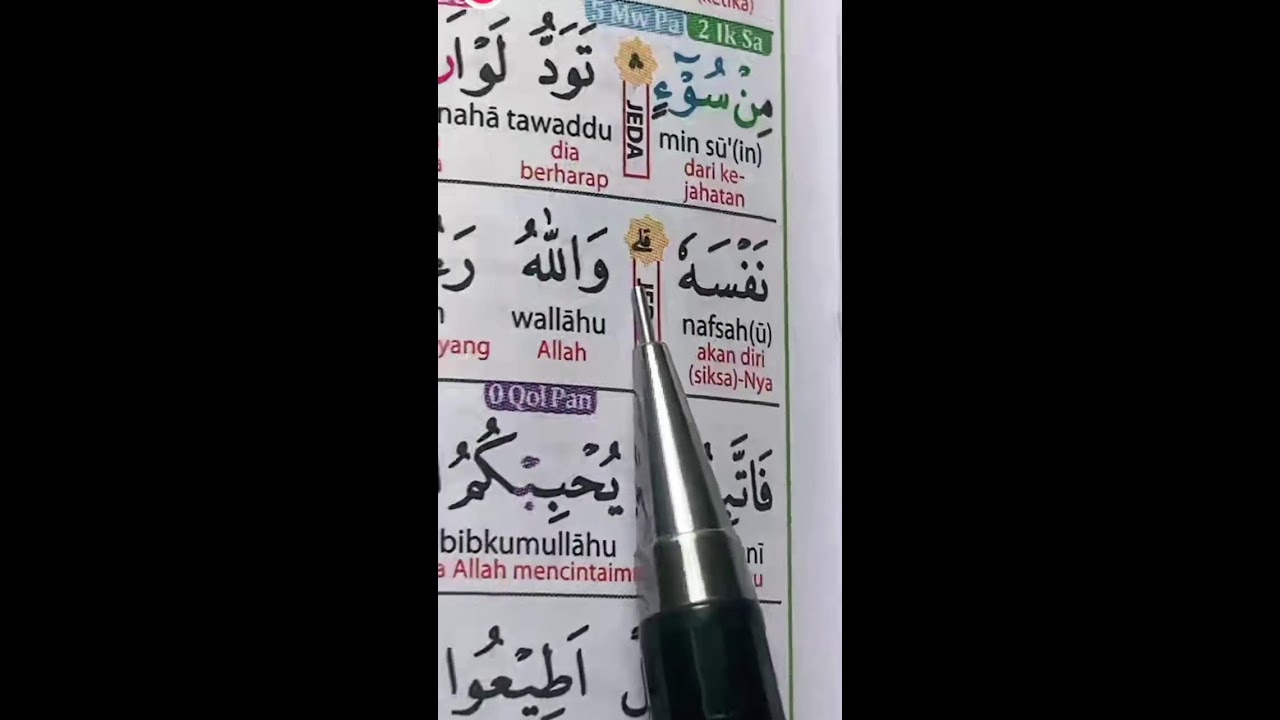 5 Mw Pa 2 Ik Sa
مِنْ سُوْۤءٍ ۛ تَوَدُّ لَوْ
JEDA
min sū'(in) nahā tawaddu
dari ke-
jahatan
dia
berharap
نَفْسَهٗ ۗ وَاللّٰهُ
nafsah(ū) wallāhu
akan diri
(siksa)-Nya
Allah yang
0 Qol Pan
يُحْبِبْكُمُ
bibkumullāhu
Allah mencintaim
اَطِيْعُوا